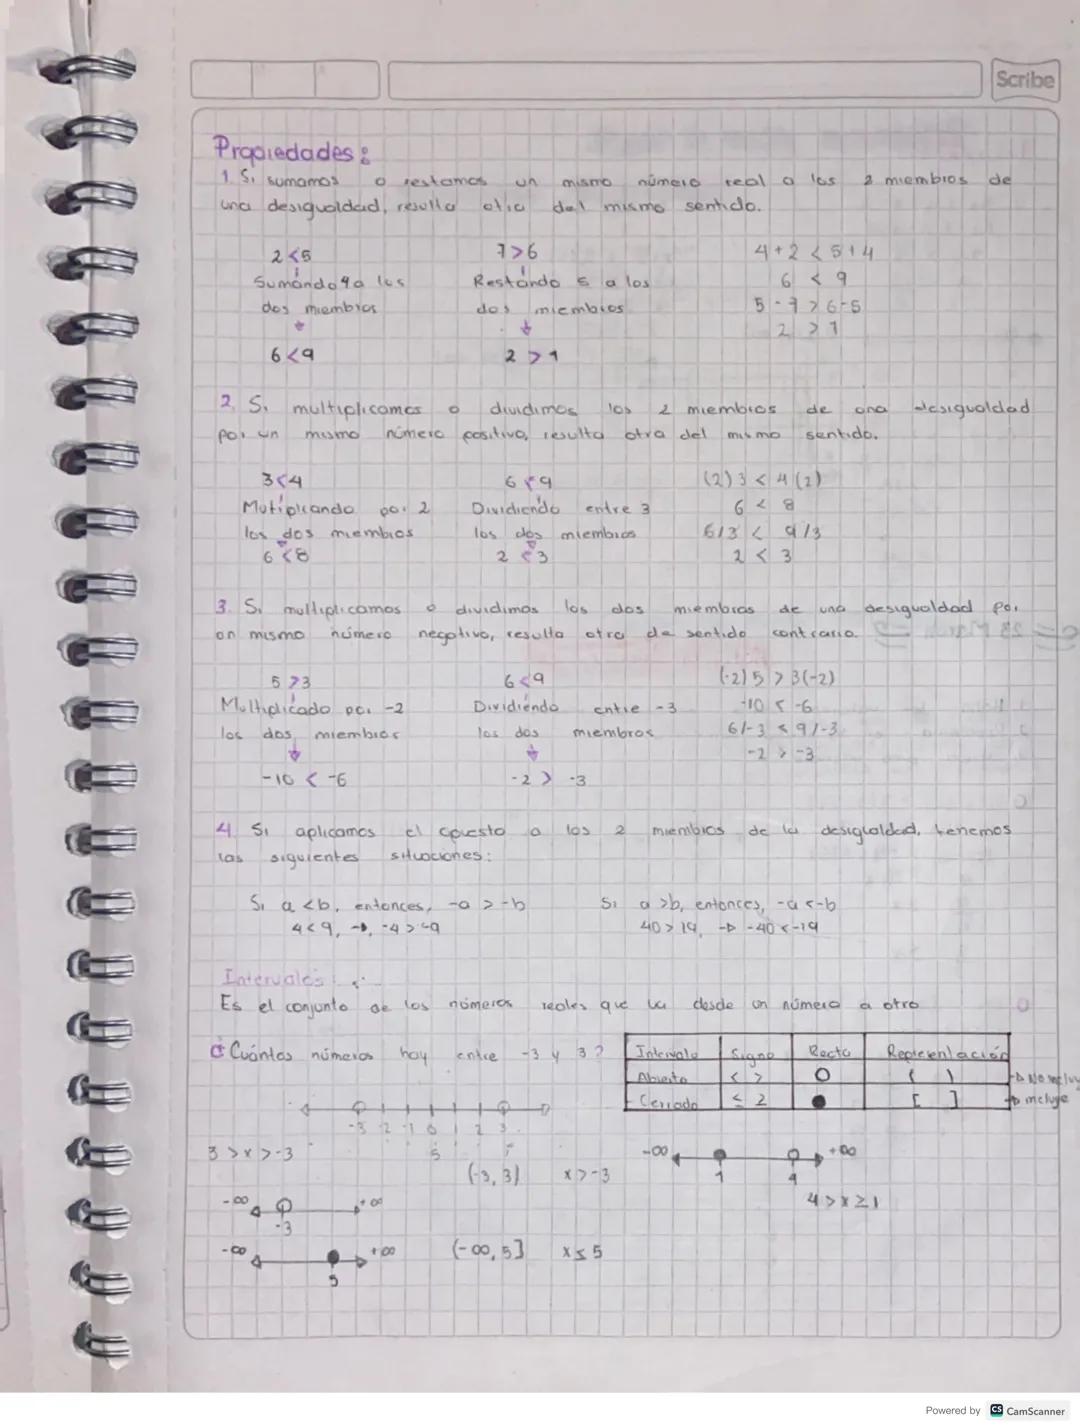 Scribe
Propiedades:
1. Si sumamos o restamos un mismo número real a los 2 miembros de
una desigualdad, resulta otra del mismo sentido.
2<5 7>6 4+2<5+4
Sumando 4 a los Restando 5 a los 6 < 9
dos miembros dos miembros 5-7>6-5
6<9 2 > 1 2 > 1
2. Si multiplicamos o dividimos los 2 miembros de una desigualdad
por un mismo número positivo, resulta otra del mismo sentido.
3<4 6<9 (2)3<4(2)
Mutiplicando por 2 Dividiendo entre 3 6 < 8
los dos miembros los dos miembros 6/3 < 9/3
6<8 2 < 3 2 < 3
3. Si multiplicamos o dividimos los dos miembros de una desigualdad por
un mismo número negativo, resulta otra de sentido contrario.
5>3 6<9 (-2)5 > 3(-2)
Multiplicado por -2 Dividiendo entre -3 -10 < -6
los dos miembros los dos miembros 6/-3 < 9/-3
-10 < -6 -2 > -3 -2 > -3
4. Si aplicamos el opuesto a los 2 miembros de la desigualdad, tenemos
las siguientes situaciones:
Si a<b, entonces, -a > -b Si a>b, entonces, -a<-b
4<9, → -4>-9 40>19, → -40<-19
Intervalos:
Es el conjunto de los números reales que va desde un número a otro
¿Cuántos números hay entre -3 y 3?
Intervalo Signo Recta Representación
Abierto < > ( )
Cerrado ≤ ≥ [ ] incluye
-3 -2 -1 0 1 2 3
3 > x > -3 (-3, 3) x > -3
-∞ 1 4 +∞
4 > x ≥ 1
-∞ -3 +∞
-∞ 5 +∞ (-∞, 5] x ≤ 5
Powered by CS CamScanner